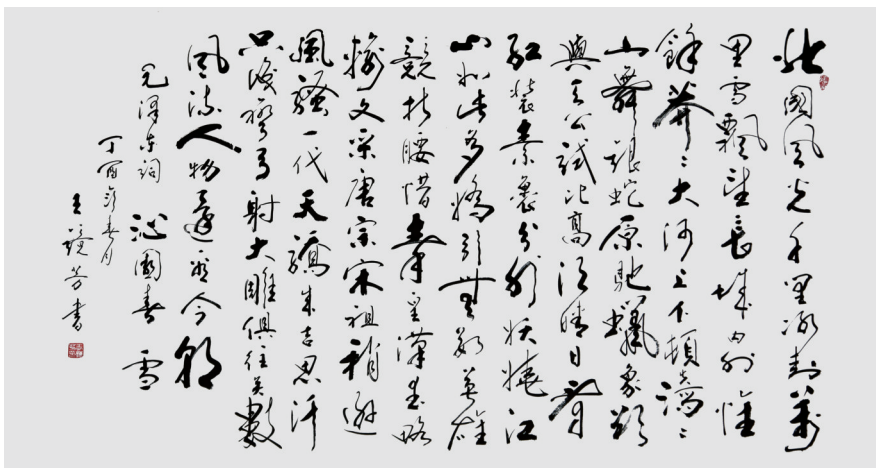 北國风光千里冰封萬
里雪飄望長城内外惟
餘莽〻大河上下頓失滔〻
山舞銀蛇原馳蠟象欲
與天公試比高須晴日看
紅裝素裹分外妖嬈江
山如此多嬌引無數英雄
競折腰惜秦皇漢武略
輸文采唐宗宋祖稍遜
風騷一代天驕成吉思汗
只識彎弓射大雕俱往矣數
风流人物還看今朝
毛澤东詞 沁園春 雪
丁酉年春月
王鏡芳書